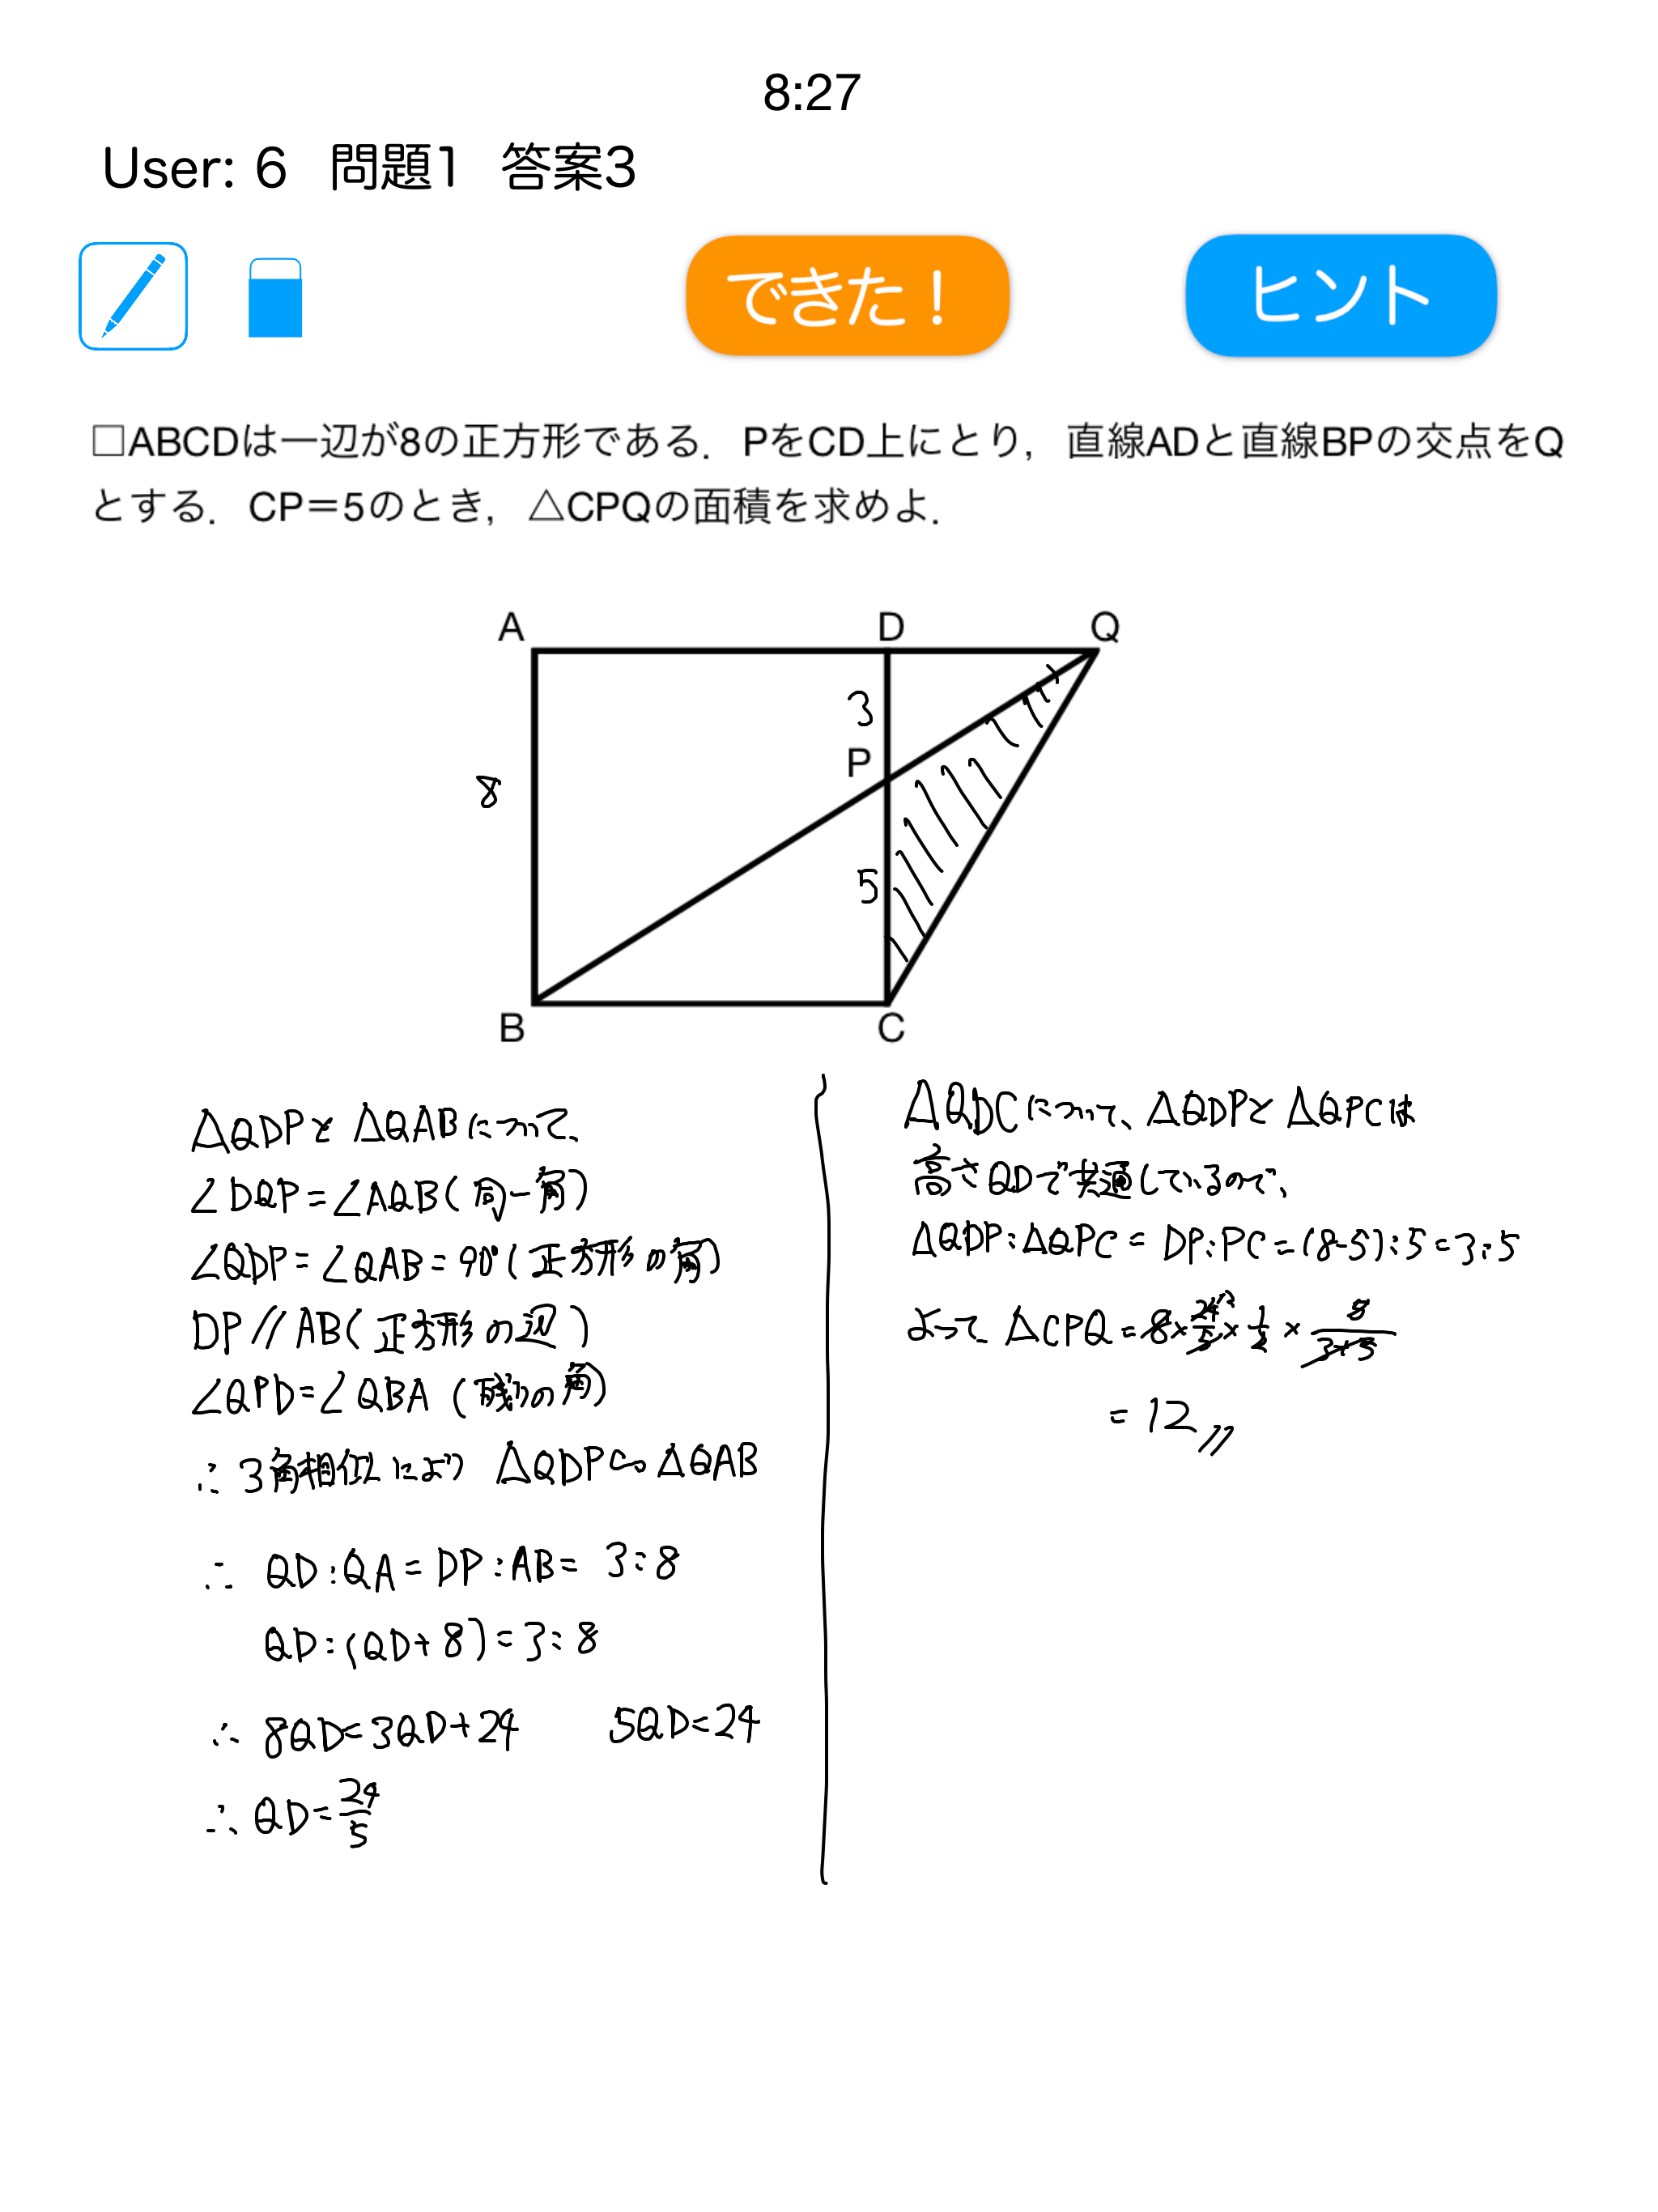 8:27
User: 6 問題1 答案3
できた！
ヒント
□ABCDは一辺が8の正方形である．PをCD上にとり，直線ADと直線BPの交点をQ
とする．CP＝5のとき，△CPQの面積を求めよ．
A
D
Q
3
P
8
5
B
C
△QDPと△QABについて、
∠DQP=∠AQB(同一角)
∠QDP=∠QAB=90°(正方形の角)
DP//AB(正方形の辺)
∠QPD=∠QBA(残りの角)
∴3角相似により △QDP∽△QAB
∴ QD:QA=DP:AB= 3:8
QD:(QD+8)=3:8
∴ 8QD=3QD+24 5QD=24
∴ QD=24/5
△QDCについて、△QDPと△QPCは
高さQDで共通しているので、
△QDP:△QPC= DP:PC=(8-5):5=3:5
よって、△CPQ=8×24/5×1/2×5/(3+5)
=12//